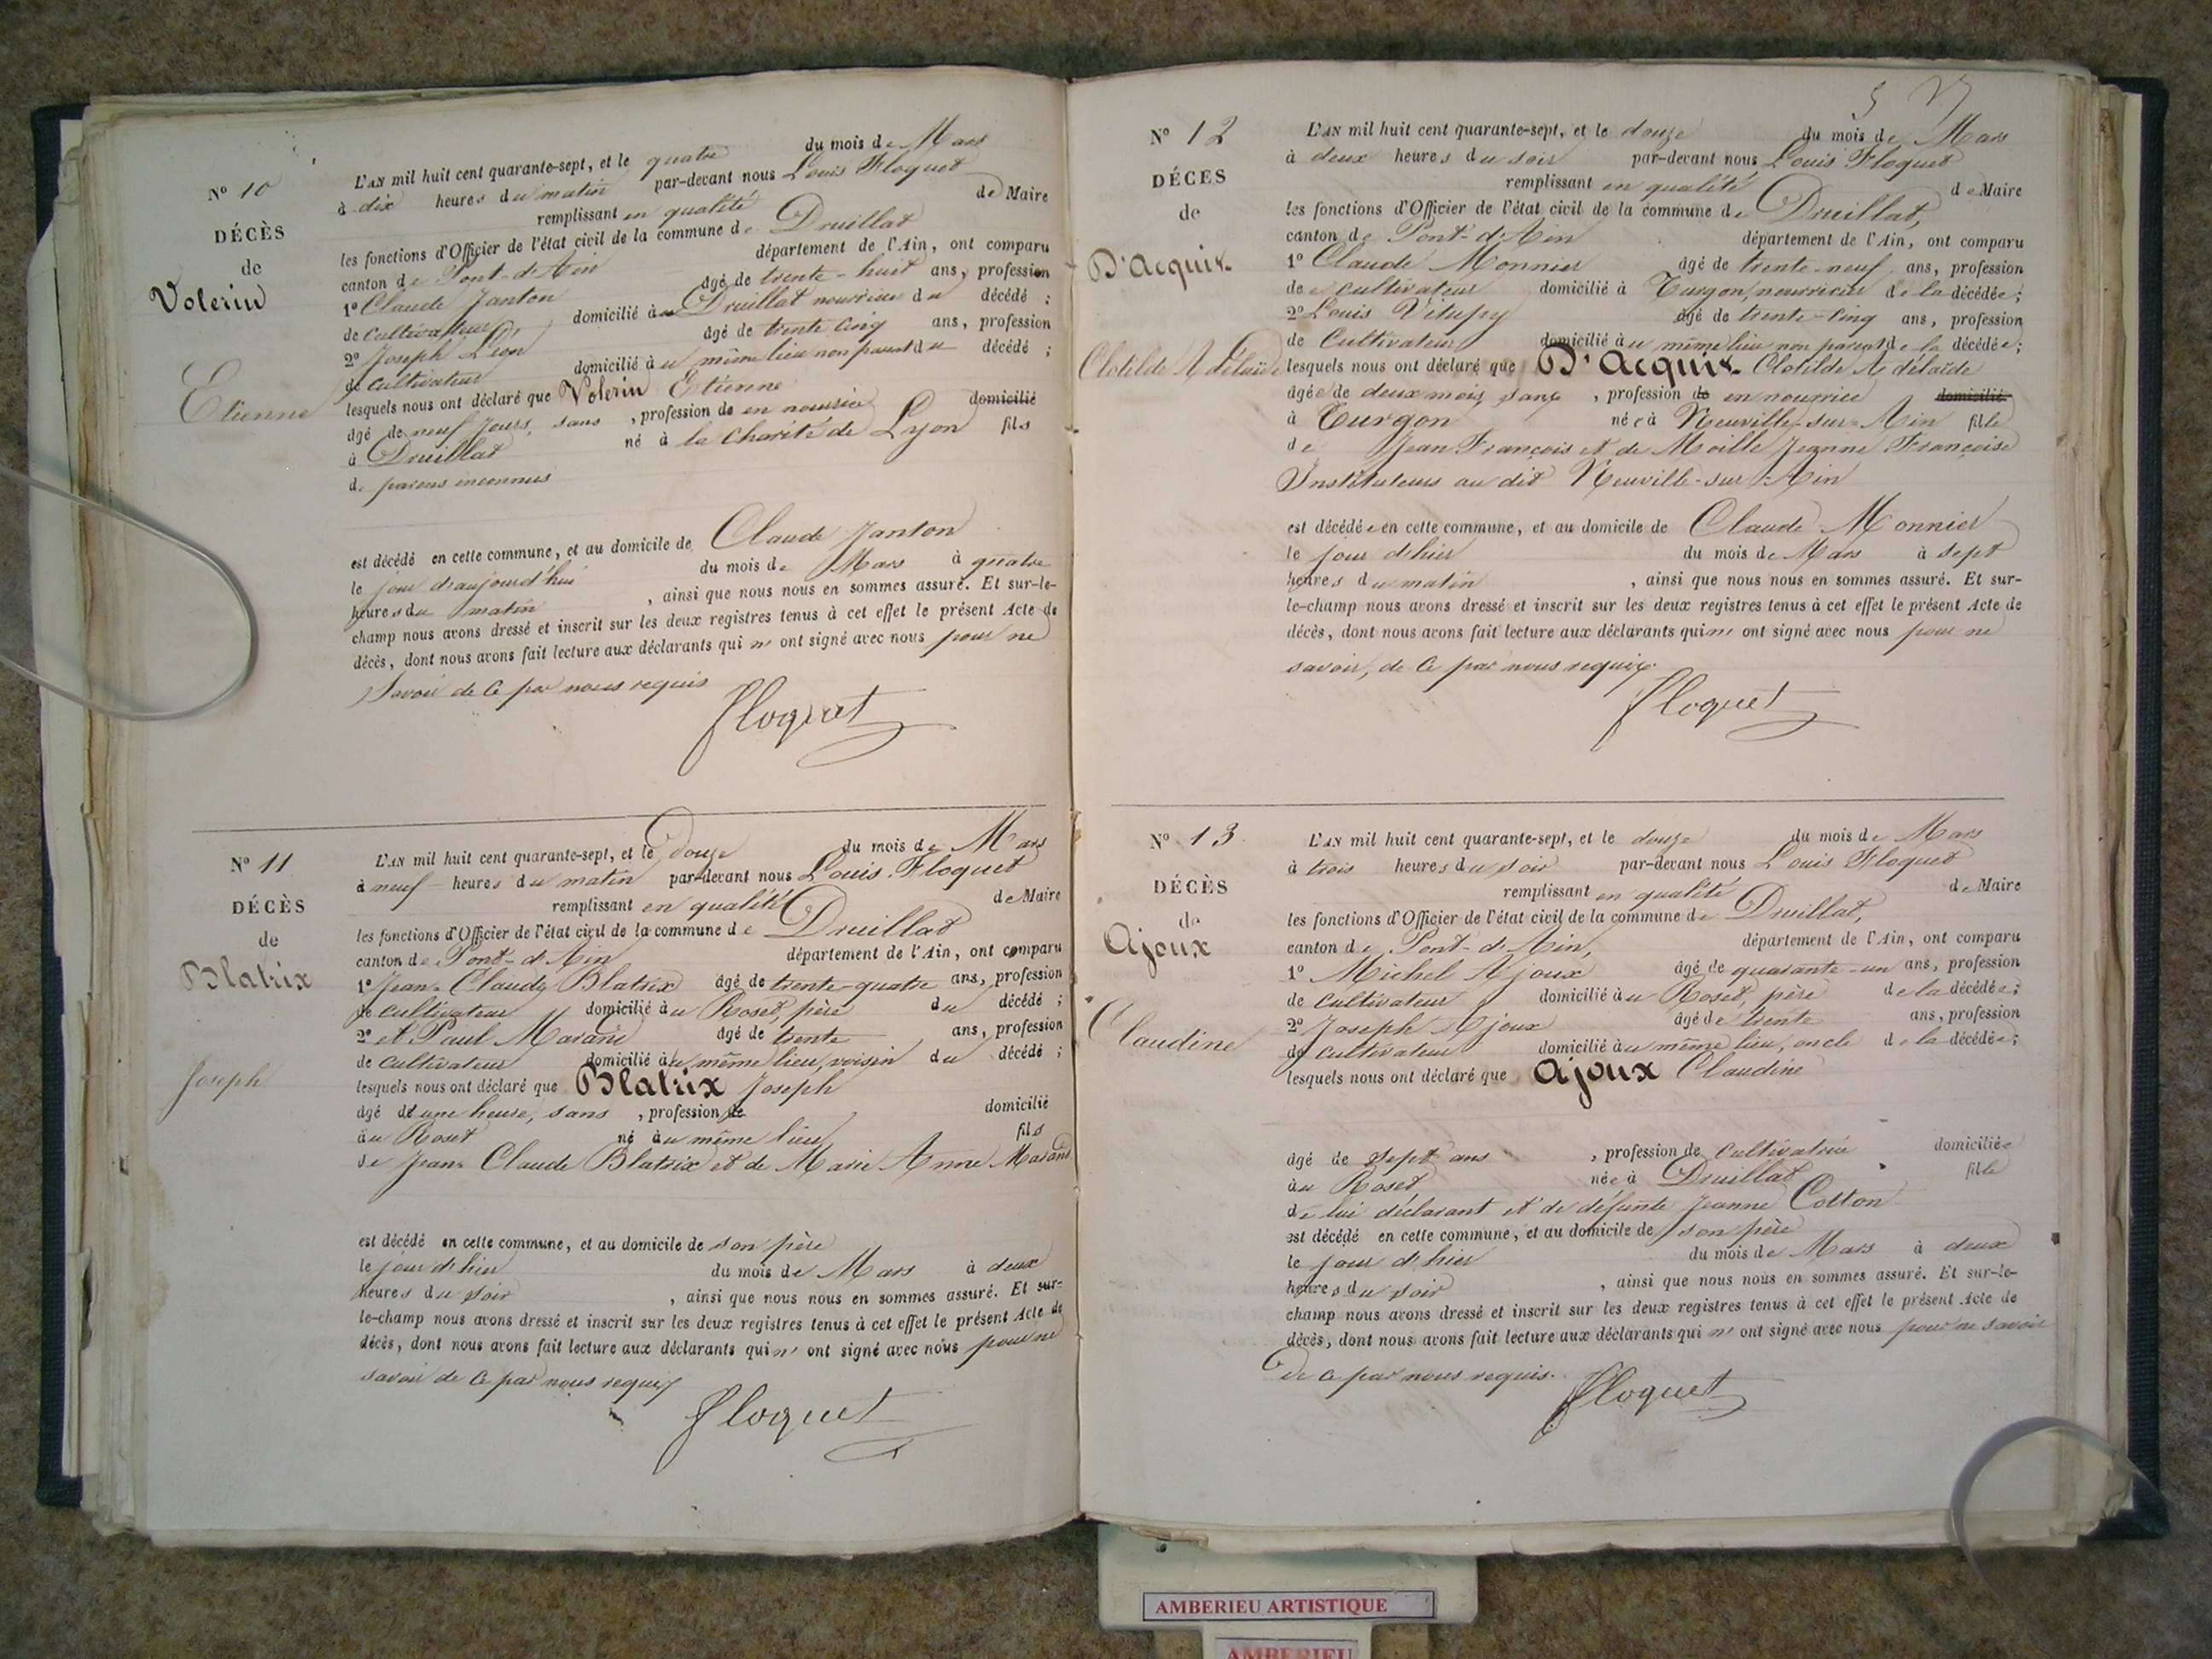 Nº 10
DÉCÈS
de
Volerin
Etienne
L'AN mil huit cent quarante-sept, et le quatre du mois de Mars
à dix heures du matin par-devant nous Louis Floquet
remplissant en qualité de Maire
les fonctions d'Officier de l'état civil de la commune de Druillat
canton de Pont-d'Ain département de l'Ain, ont comparu
1º Claude Janton âgé de trente-huit ans, profession
de cultivateur domicilié à Druillat nourricier du décédé ;
2º Joseph Léon âgé de trente cinq ans, profession
de cultivateur domicilié au même lieu non parent du décédé ;
lesquels nous ont déclaré que Volerin Etienne
âgé de neuf jours, sans , profession de en nourrice domicilié
à Druillat né à la Charité de Lyon fils
de parens inconnus
est décédé en cette commune, et au domicile de Claude Janton
le jour d'aujourd'hui du mois de Mars à quatre
heures du matin , ainsi que nous nous en sommes assuré. Et sur-le-
champ nous avons dressé et inscrit sur les deux registres tenus à cet effet le présent Acte de
décès, dont nous avons fait lecture aux déclarants qui n' ont signé avec nous pour ne
savoir de ce par nous requis
Floquet
Nº 11
DÉCÈS
de
Blatrix
Joseph
L'AN mil huit cent quarante-sept, et le douze du mois de Mars
à neuf heures du matin par-devant nous Louis Floquet
remplissant en qualité de Maire
les fonctions d'Officier de l'état civil de la commune de Druillat
canton de Pont-d'Ain département de l'Ain, ont comparu
1º Jean-Claude Blatrix âgé de trente-quatre ans, profession
de cultivateur domicilié au Roset, père du décédé ;
2º et Paul Marand âgé de trente ans, profession
de cultivateur domicilié au même lieu, voisin du décédé ;
lesquels nous ont déclaré que Blatrix Joseph
âgé d'une heure, sans , profession de domicilié
au Roset né au même lieu fils
de Jean-Claude Blatrix et de Marie Anne Marand
est décédé en cette commune, et au domicile de son père
le jour d'hier du mois de Mars à deux
heures du soir , ainsi que nous nous en sommes assuré. Et sur-
le-champ nous avons dressé et inscrit sur les deux registres tenus à cet effet le présent Acte de
décès, dont nous avons fait lecture aux déclarants qui n' ont signé avec nous pour ne
savoir de ce par nous requis
Floquet
Nº 12
DÉCES
de
D'Acquix
Clotilde Adélaïde
L'AN mil huit cent quarante-sept, et le douze du mois de Mars
à deux heures du soir par-devant nous Louis Floquet
remplissant en qualité de Maire
les fonctions d'Officier de l'état civil de la commune de Druillat,
canton de Pont-d'Ain département de l'Ain, ont comparu
1º Claude Monnier âgé de trente-neuf ans, profession
de cultivateur domicilié à Turgon, nourricier de la décédée ;
2º Louis âgé de trente-cinq ans, profession
de Cultivateur domicilié au même lieu non parent de la décédée ;
lesquels nous ont déclaré que D'Acquix Clotilde Adélaïde
âgée de deux mois, sans , profession de en nourrice domicilié
à Turgon née à Neuville-sur-Ain fille
de Jean François et de Moille Jeanne Françoise
Instituteurs au dit Neuville-sur-Ain
est décédée en cette commune, et au domicile de Claude Monnier
le jour d'hier du mois de Mars à sept
heures du matin , ainsi que nous nous en sommes assuré. Et sur-
le-champ nous avons dressé et inscrit sur les deux registres tenus à cet effet le présent Acte de
décès, dont nous avons fait lecture aux déclarants qui n' ont signé avec nous pour ne
savoir, de ce par nous requis.
Floquet
Nº 13
DÉCÈS
de
Ajoux
Claudine
L'AN mil huit cent quarante-sept, et le douze du mois de Mars
à trois heures du soir par-devant nous Louis Floquet
remplissant en qualité de Maire
les fonctions d'Officier de l'état civil de la commune de Druillat,
canton de Pont-d'Ain, département de l'Ain, ont comparu
1º Michel Ajoux âgé de quarante-un ans, profession
de cultivateur domicilié au Roset, père de la décédée ;
2º Joseph Ajoux âgé de trente ans, profession
de cultivateur domicilié au même lieu, oncle de la décédée ;
lesquels nous ont déclaré que Ajoux Claudine
âgé de sept ans , profession de cultivatrice domiciliée
au Roset née à Druillat fille
de lui déclarant et de défunte Jeanne Cotton
est décédé en cette commune, et au domicile de son père
le jour d'hier du mois de Mars à deux
heures du soir , ainsi que nous nous en sommes assuré. Et sur-le-
champ nous avons dressé et inscrit sur les deux registres tenus à cet effet le présent Acte de
décès, dont nous avons fait lecture aux déclarants qui n' ont signé avec nous pour ne savoir
de ce par nous requis.
Floquet
AMBERIEU ARTISTIQUE
AMBERIEU